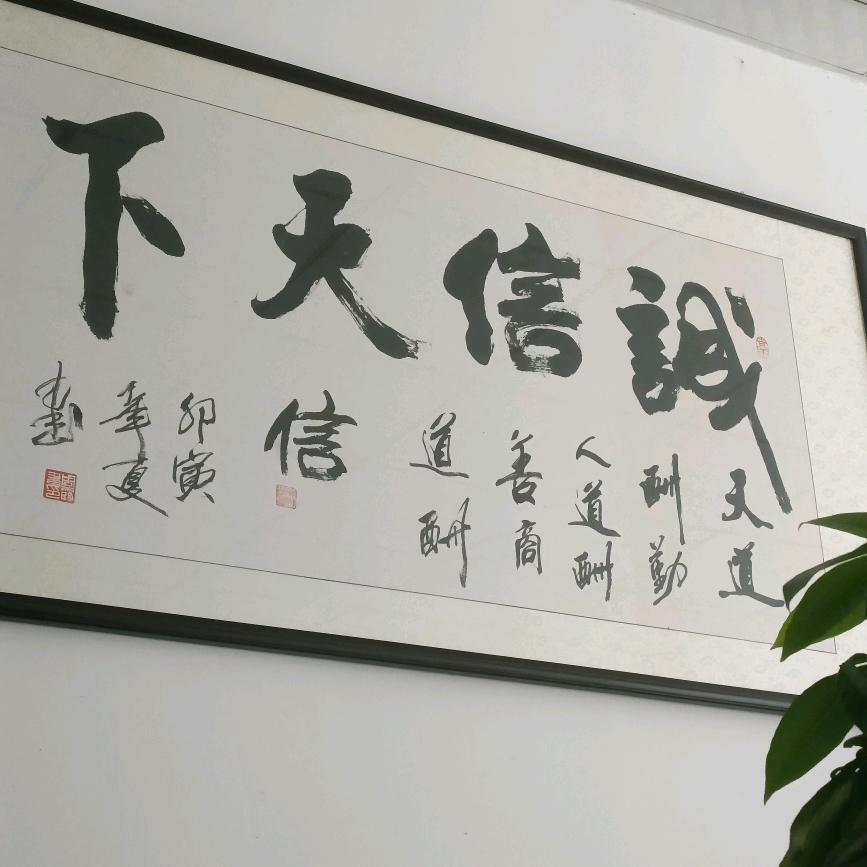 誠信天下
天道
酬勤
人道酬
善商
道酬
信
卯寅
年夏